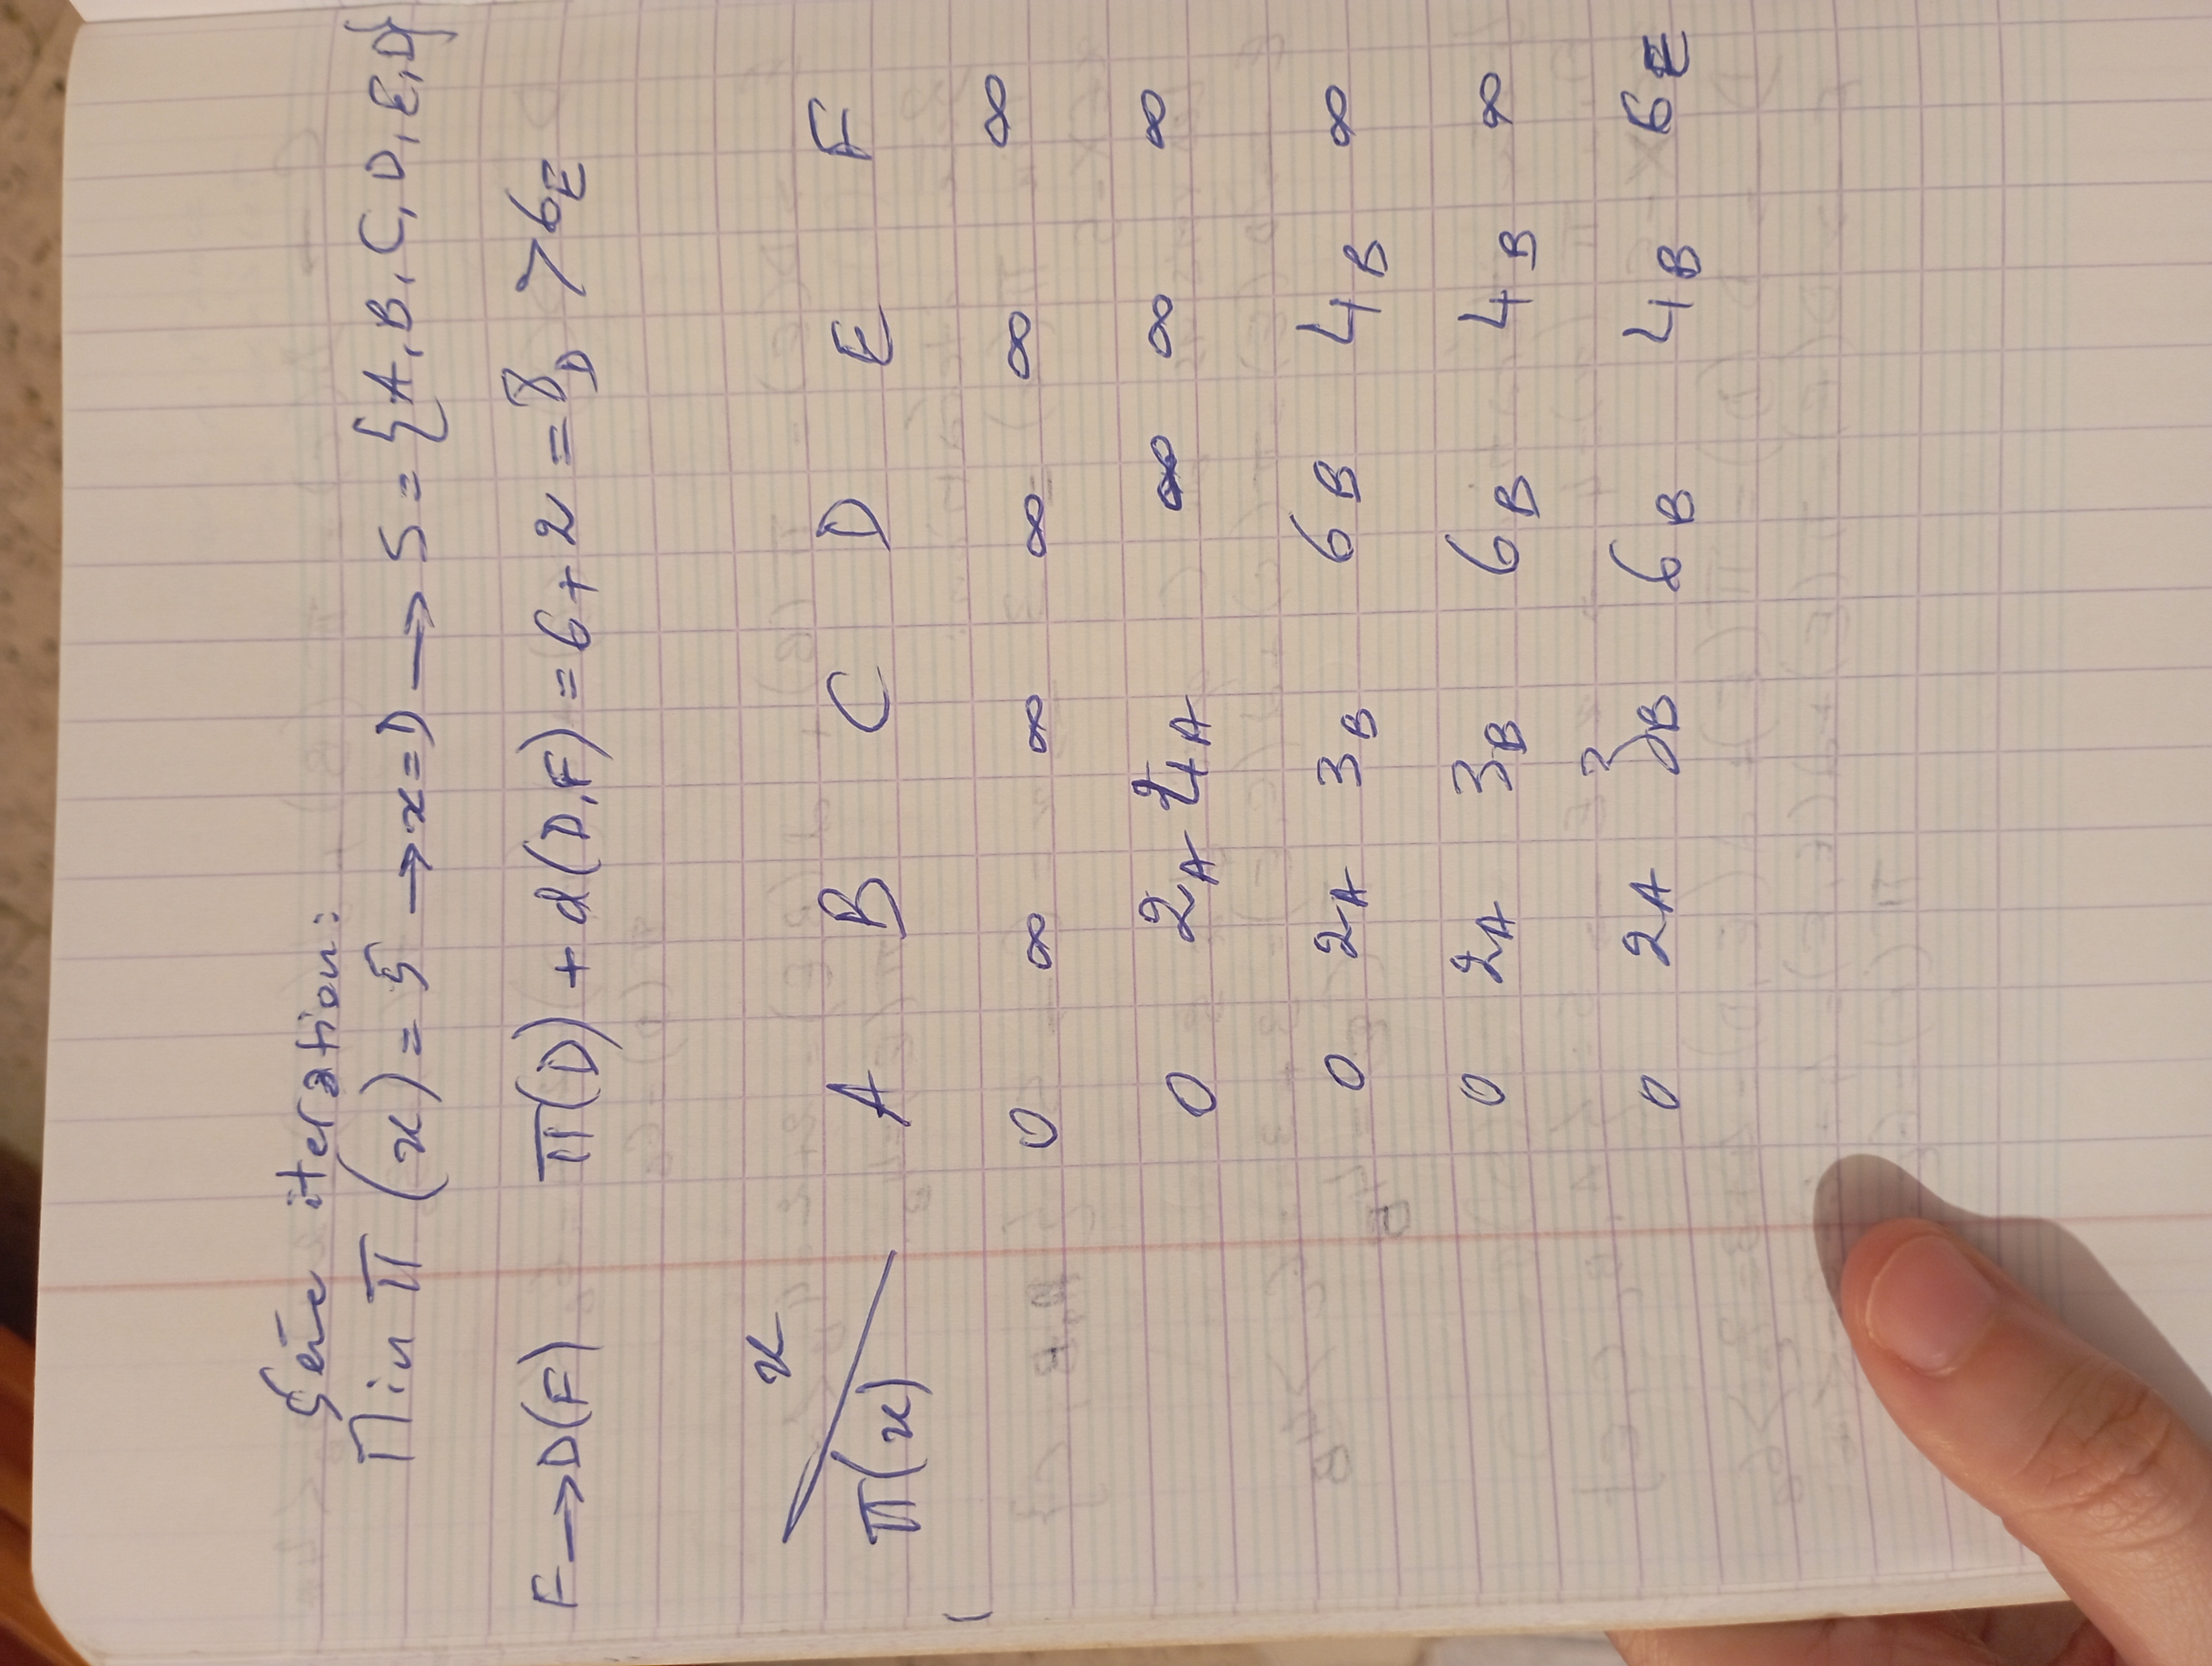 5ème iteration:
Min π (x) = 5 → x = D → S = {A, B, C, D, E, D}
F → D(F) π(D) + d(D,F) = 6 + 2 = 8D > 6E
x
π(x) A B C D E F
0 ∞ ∞ ∞ ∞ ∞
0 2A 4A ∞ ∞ ∞
0 2A 3B 6B 4B ∞
0 2A 3B 6B 4B ∞
0 2A 3B 6B 4B 6E